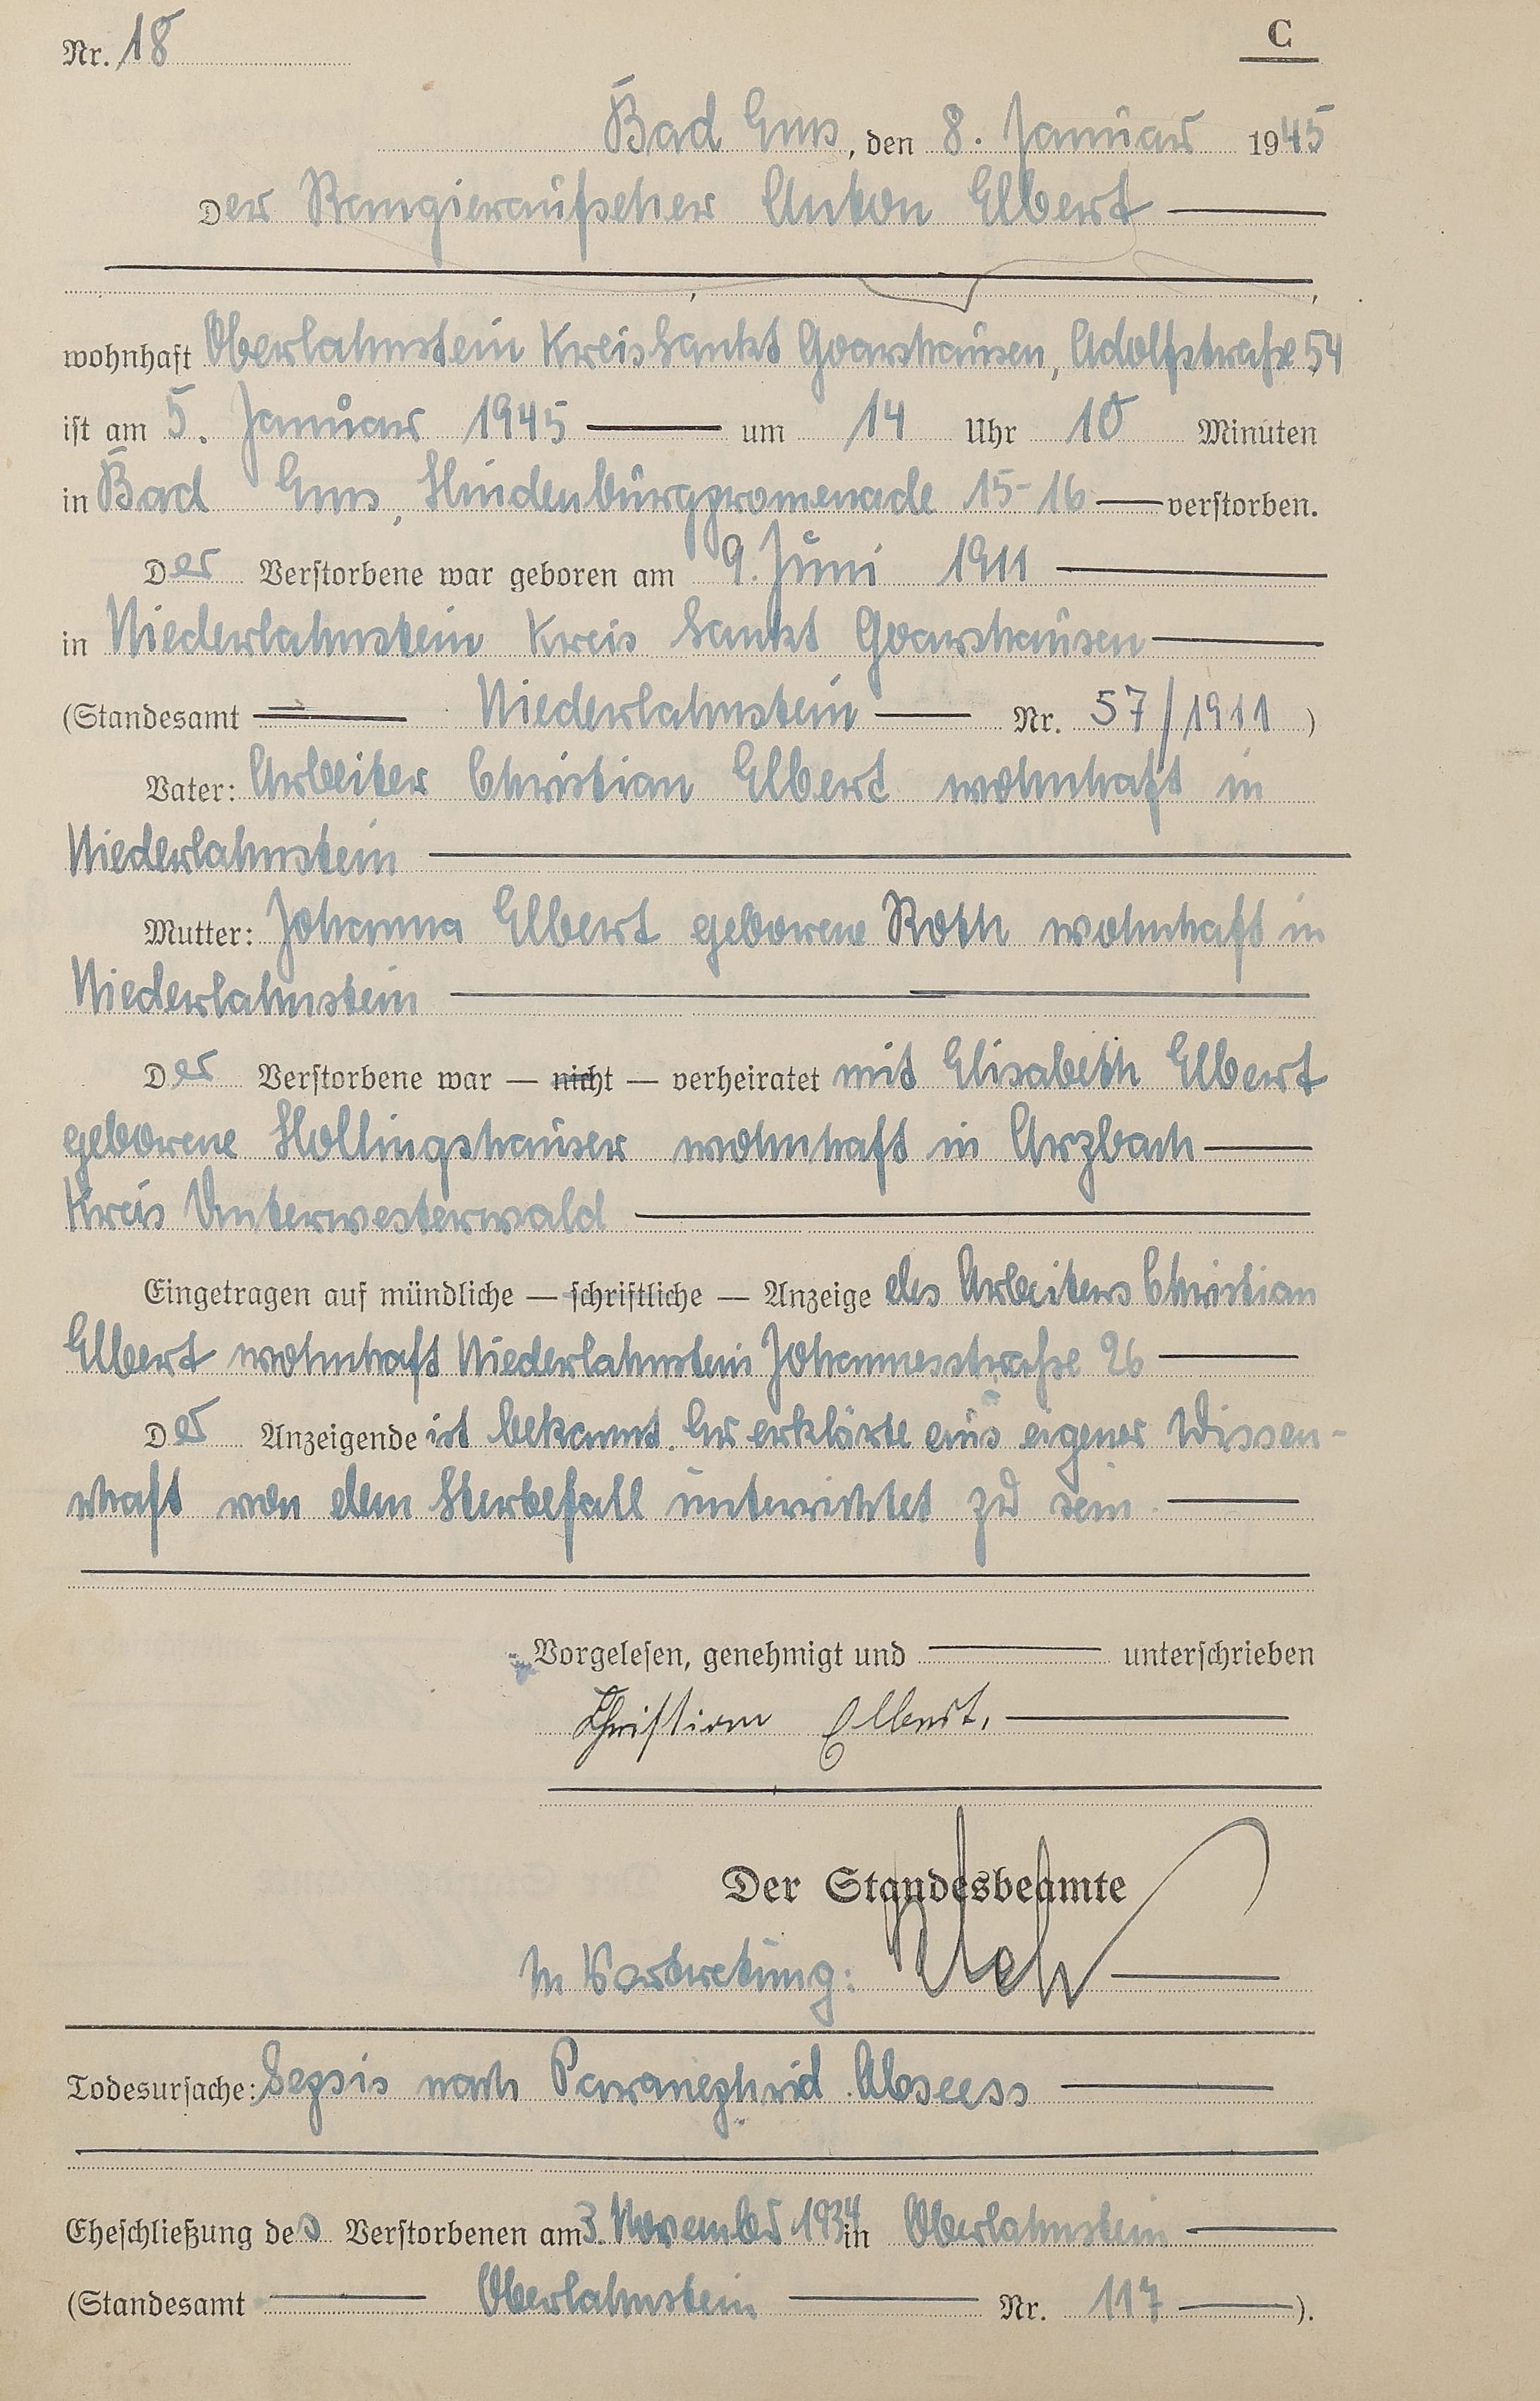 Nr. 18
C
Bad Ems, den 8. Januar 1945
Der Rangieraufseher Anton Elbert
wohnhaft Oberlahnstein Kreis Sankt Goarshausen, Adolfstraße 54
ist am 5. Januar 1945 um 14 Uhr 10 Minuten
in Bad Ems, Hindenburgpromenade 15-16 verstorben.
Der Verstorbene war geboren am 9. Juni 1911
in Niederlahnstein Kreis Sankt Goarshausen
(Standesamt Niederlahnstein Nr. 57/1911 )
Vater: Arbeiter Christian Elbert wohnhaft in
Niederlahnstein
Mutter: Johanna Elbert geborene Roth wohnhaft in
Niederlahnstein
Der Verstorbene war — nicht — verheiratet mit Elisabeth Elbert
geborene Hollingshauser wohnhaft in Arzbach
Kreis Unterwesterwald
Eingetragen auf mündliche — schriftliche — Anzeige des Arbeiters Christian
Elbert wohnhaft Niederlahnstein Johannesstraße 26
Der Anzeigende ist bekannt. Er erklärte aus eigener Wissen-
schaft von dem Sterbefall unterrichtet zu sein.
Vorgelesen, genehmigt und unterschrieben
Christian Elbert.
Der Standesbeamte
In Vertretung:
Todesursache: Sepsis nach Paranephrid. Abscess
Eheschließung des Verstorbenen am 3. November 1934 in Oberlahnstein
(Standesamt Oberlahnstein Nr. 117 ).